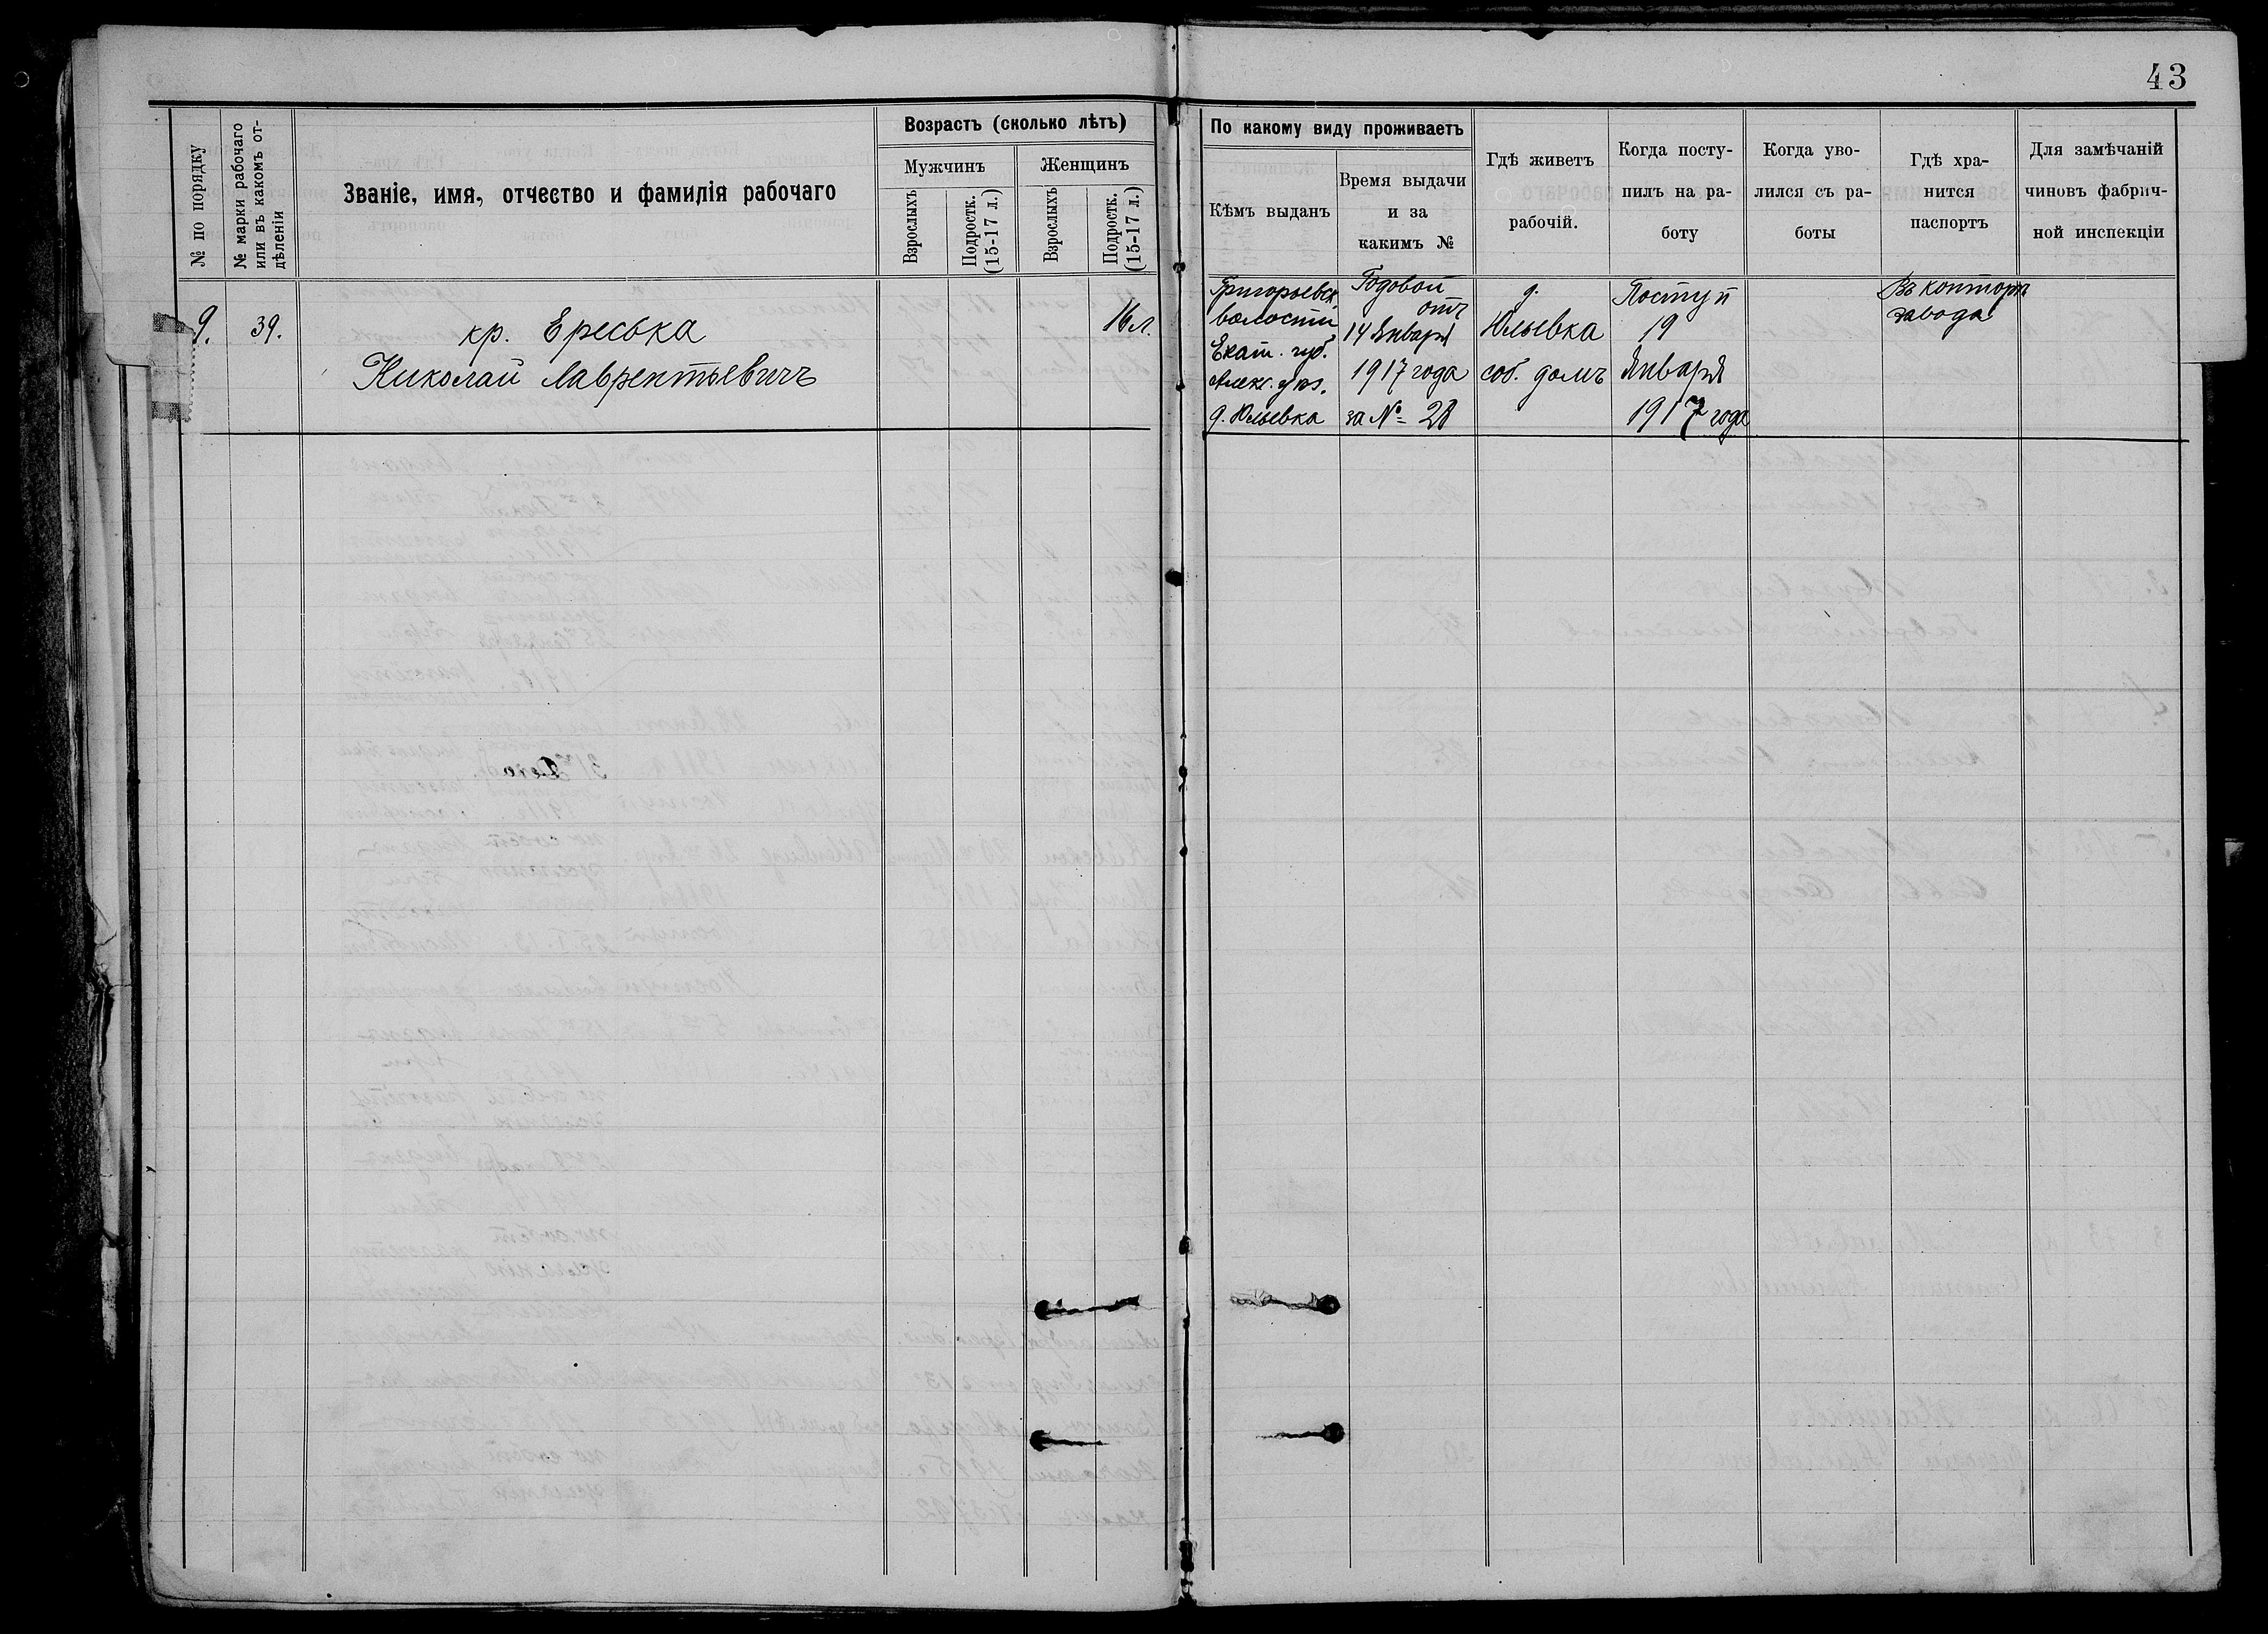 43
№ по порядку
№ марки рабочаго
или въ какомъ от-
дѣленіи
Званіе, имя, отчество и фамилія рабочаго
Возрастъ (сколько лѣтъ)
Мужчинъ
Женщинъ
Взрослыхъ
Подростк.
(15-17 л.)
Взрослыхъ
Подростк.
(15-17 л.)
По какому виду проживаетъ
Кѣмъ выданъ
Время выдачи
и за
какимъ №
Гдѣ живетъ
рабочій.
Когда посту-
пилъ на ра-
боту
Когда уво-
лился съ ра-
боты
Гдѣ хра-
нится
паспортъ
Для замѣчаній
чиновъ фабрич-
ной инспекціи
9.
39.
кр. Ереська
Николай Лаврентьевичъ
16 л.
Григорьевск.
волости
Екат. губ.
Алекс. у.
д. Юльевка
Годовой
отъ
14 Января
1917 года
за № 28
д.
Юльевка
соб. домъ
Поступ
19
Января
1917 года
Въ конторѣ
завода